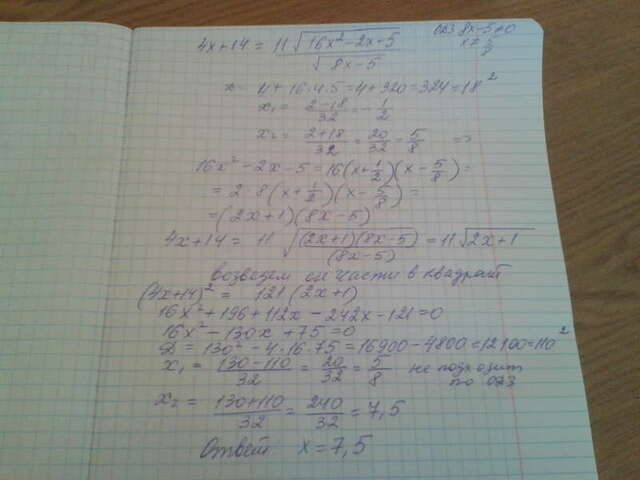 4x+14 = 11 √(16x²-2x-5) / √(8x-5)
ОДЗ 8x-5≠0
x≠ 5/8
x= 4+16·4·5=4+320=324=18²
x₁= (2-18)/32 = -1/2
x₂= (2+18)/32 = 20/32 = 5/8 =>
16x²-2x-5=16(x+1/2)(x-5/8)=
= 2·8(x+1/2)(x-5/8)=
=(2x+1)(8x-5)
4x+14= 11 √((2x+1)(8x-5)/(8x-5)) = 11√(2x+1)
возведем части в квадрат
(4x+14)² = 121(2x+1)
16x²+196+112x-242x-121=0
16x²-130x+75=0
D=130²-4·16·75=16900-4800=12100=110²
x₁= (130-110)/32 = 20/32 = 5/8 не подходит
по ОДЗ
x₂= (130+110)/32 = 240/32 = 7,5
Ответ x=7,5